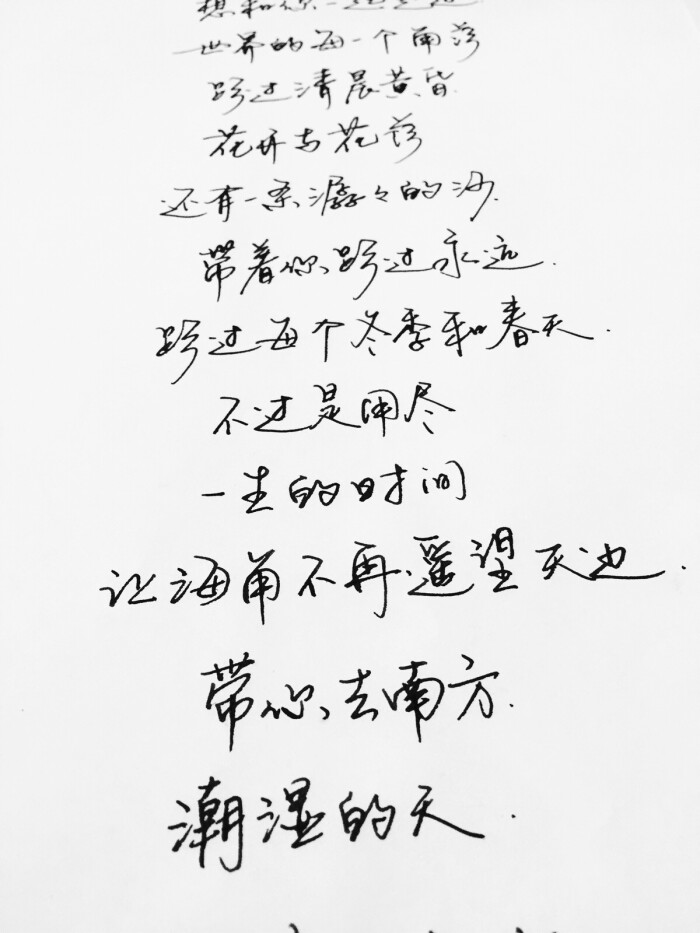 想和你一起
世界的每一个角落
跨过清晨黄昏
花开与花落
还有一条潺々的沙
带着你跨过永远
跨过每个冬季和春天
不过是用尽
一生的时间
让海角不再遥望天边
带你去南方
潮湿的天